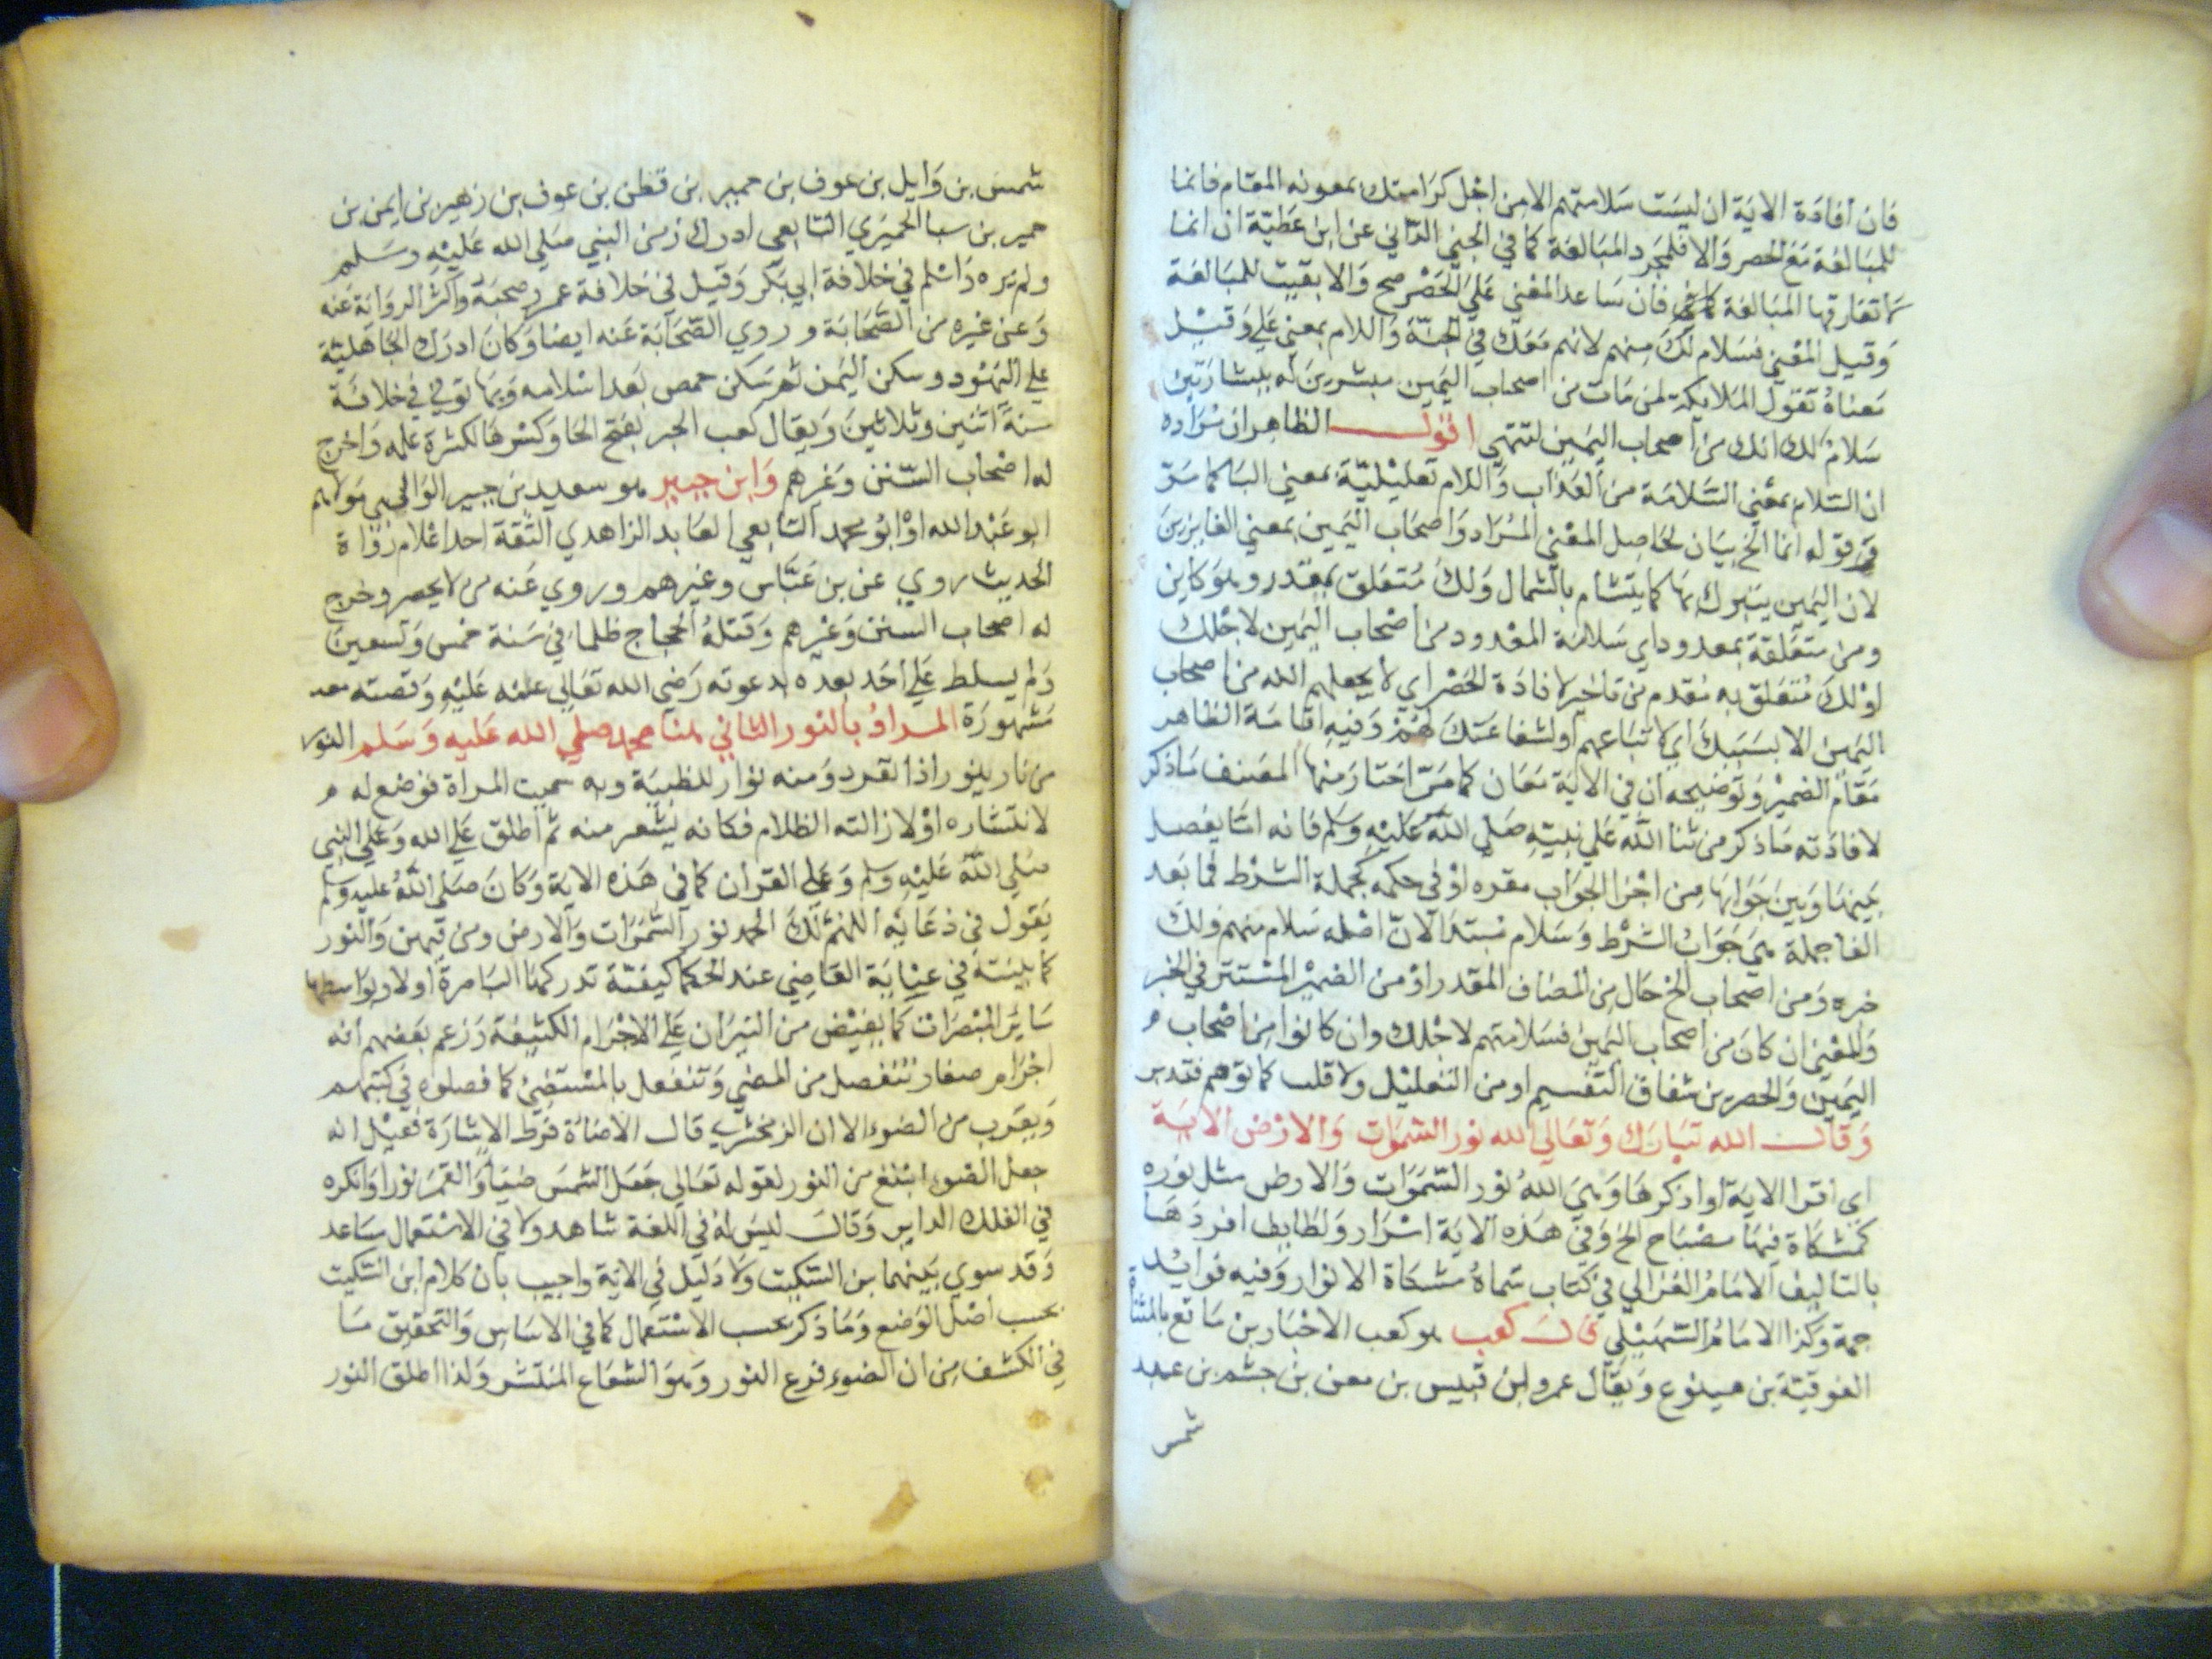 فان افادة الاية ان ليست سلامتهم الا من اجل كرامتك بمعونه المقام فانما
للمبالغة مع الحصر والا فلمجرد المبالغة كما في الجني الداني عن ابن عطية ان انما
لا تفارقها المبالغة فان ساعد المعني علي الحصر صح والا بقيت للمبالغة
وقيل المعني فسلام لك منهم لانهم معك في الجنة واللام بمعني علي وقيل
معناه تقول الملايكة لمن مات من اصحاب اليمين مبشرين له ببشارتين
سلام لك انك من اصحاب اليمين انتهي اقول الظاهر ان مراده
ان السلام بمعني السلامة من العذاب واللام تعليلية بمعني البا كما مر
في قوله انما الخ بيان لحاصل المعني المراد واصحاب اليمين بمعني الفايزين
لان اليمين يتبرك بها كما يتشام بالشمال ولك متعلق بمقدر وهو كاين
ومن متعلقة بمعدود اي سلامة المعدود من اصحاب اليمين لاجلك
او لك متعلق به مقدم من تاخير لافادة الحصر اي لا يجعلهم الله من اصحاب
اليمين الا بسببك اي لاتباعهم او لشفاعتك لهم وفيه اقامة الظاهر
مقام الضمير وتوضيحه ان في الاية معان كما مر اختار منها المصنف ما ذكر
لافادته ما ذكر من ثنا الله علي نبيه صلي الله عليه وسلم فانه اما يفصل
بينها وبين جوابها من اجزا الجواب مقره او في حكمه كجملة الشرط فما بعد
الفا جملة هي جواب الشرط وسلام مبتدا لان اصله سلام منهم ولك
خبره ومن اصحاب الخ حال من المضاف المقدر او من الضمير المستتر في الخبر
والمعني ان كان من اصحاب اليمين فسلامتهم لاجلك وان كانوا من اصحاب
اليمين والحصر من التقسيم او من التعليل ولا قلب كما توهم فتدبر
وقال الله تبارك وتعالي الله نور السموات والارض الاية
اي اقرا الاية او اذكرها وهي الله نور السموات والارض مثل نوره
كمشكاة فيها مصباح الخ وفي هذه الاية اسرار ولطايف افردها
بالتاليف الامام الغزالي في كتاب سماه مشكاة الانوار وفيه فوايد
جمة وكذا الامام السهيلي قال كعب هو كعب الاحبار بن ماتع بالمثناة
الفوقية بن هينوع ويقال عمرو بن قيس بن معن بن جشم بن عبد
شمس
شمس بن وايل بن عوف بن حمير بن قطن بن عوف بن زهير بن ايمن بن
حمير بن سبا الحميري التابعي ادرك زمن النبي صلي الله عليه وسلم
ولم يره واسلم في خلافة ابي بكر وقيل في خلافة عمر وصحبه واكثر الرواية عنه
وعن غيره من الصحابة وروي الصحابة عنه ايضا وكان ادرك الجاهلية
علي اليهود وسكن اليمن ثم سكن حمص بعد اسلامه وبها توفي في خلافة
سنة اثنين وثلاثين ويقال كعب الحبر بفتح الحا وكسرها لكثرة علمه واخرج
له اصحاب السنن وغرهم وابن جبير هو سعيد بن جبير الوالبي مولاهم
ابو عبد الله او ابو محمد التابعي العابد الزاهدي الثقة احد اعلام رواة
الحديث روي عن بن عباس وغيرهم وروي عنه من لا يحصر وخرج
له اصحاب السنن وغيرهم وقتله الحجاج ظلما في سنة خمس وتسعين
ولم يسلط علي احد بعده لدعوته رضي الله تعالي عنه عليه وقصته معه
مشهورة المراد بالنور الثاني هنا محمد صلي الله عليه وسلم النور
من نار ينور اذا نفر ومنه نوار للظبية وبه سميت المراة فوضع له
لانتشاره او لازالته الظلام فكانه ينفر منه ثم اطلق علي الله وعلي النبي
صلي الله عليه وسلم وعلي القران كما في هذه الاية وكان صلي الله عليه وسلم
يقول في دعايه اللهم لك الحمد نور السموات والارض ومن فيهن والنور
كما بينته في عناية القاضي عند الحكما كيفية تدركها الباصرة اولا وبواسطتها
ساير المبصرات كما يفيض من النيران علي الاجرام الكثيفة وزعم بعضهم انه
اجرام صغار تنفصل من المضي وتنفعل بالمستضي كما فصلوه في كتبهم
ويقرب من الضوء الا ان الزمخشري قال الاضاة فرط الانارة فقيل انه
جعل الضوء ابلغ من النور لقوله تعالي جعل الشمس ضيا والقمر نورا وانكره
في الفلك الداير وقال ليس له في اللغة شاهد ولا في الاستعمال ساعد
وقد سوي بينهما بن السكيت ولا دليل في الاية واجيب بان كلام ابن السكيت
بحسب اصل الوضع وما ذكر بحسب الاستعمال كما في الاساس والتحقيق ما
في الكشف من ان الضوء فرع النور وهو الشعاع المنتشر ولذا اطلق النور